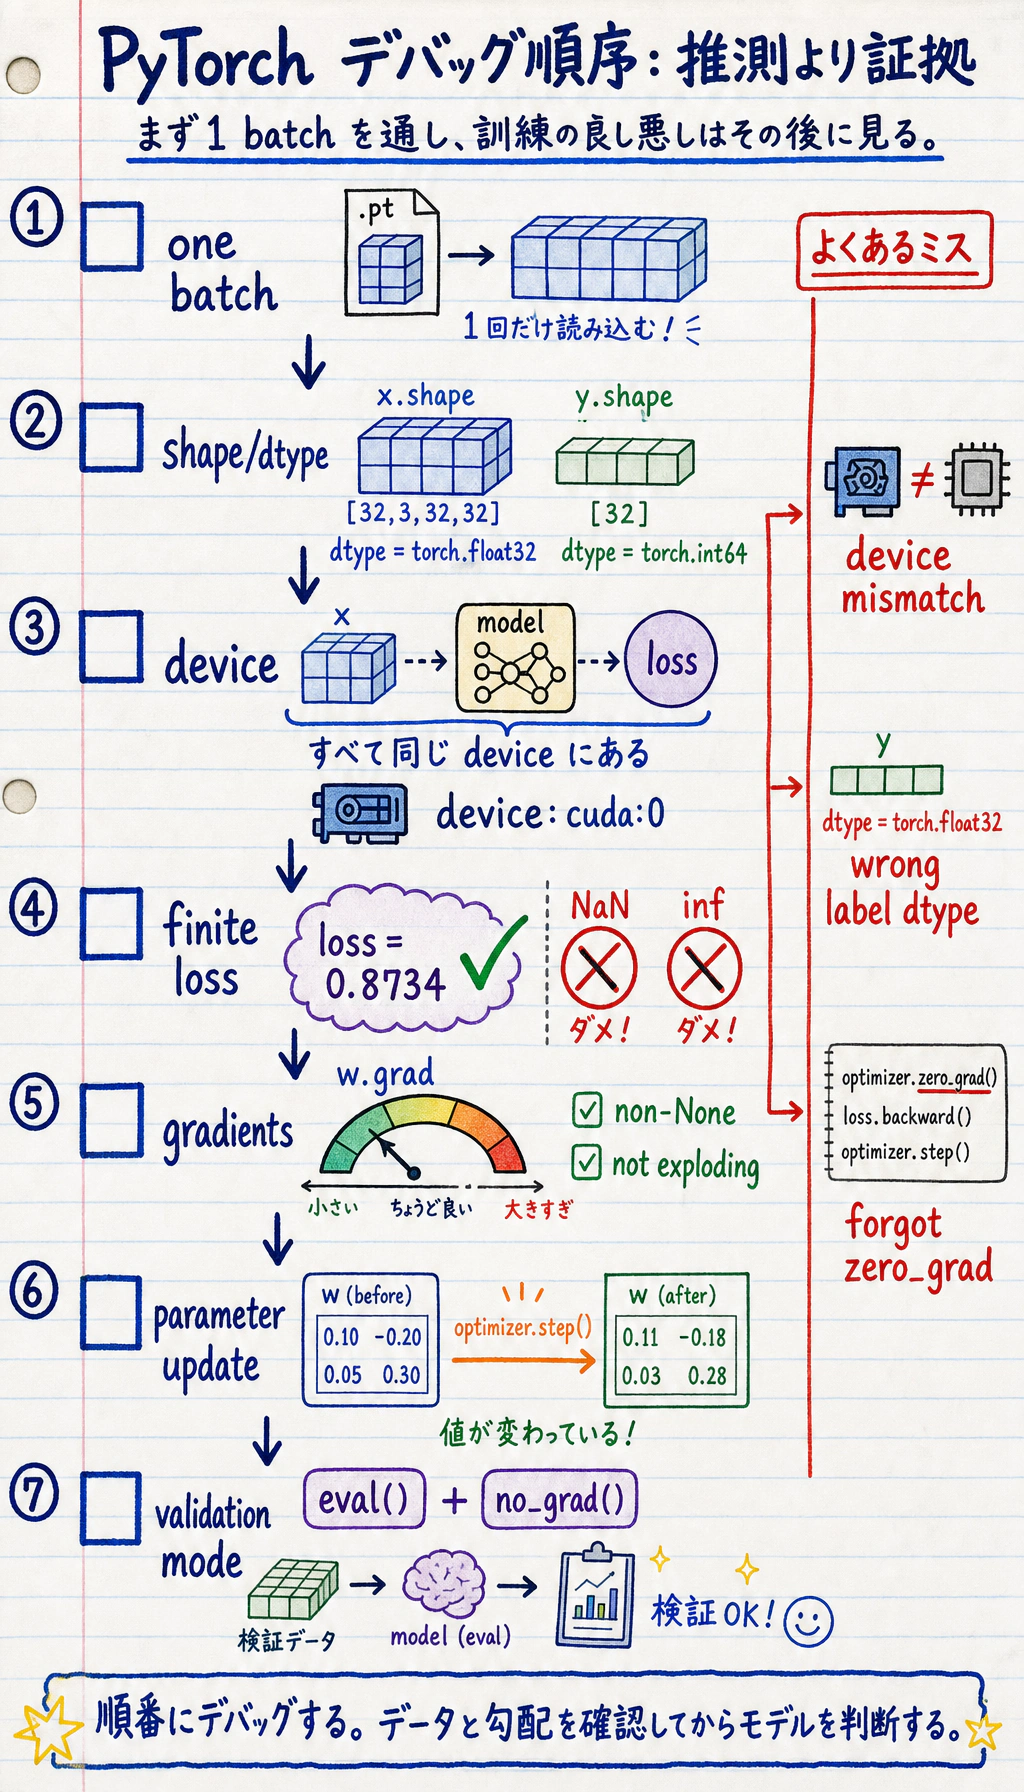 PyTorch デバッグ順序：推測より証拠
まず1 batch を通し、訓練の良し悪しはその後に見る。
① one
batch
.pt
1回だけ読み込む！
よくあるミス
② shape/dtype
x.shape
[32,3,32,32]
dtype = torch.float32
y.shape
[32]
dtype = torch.int64
≠
device
mismatch
③ device
x
model
loss
すべて同じ device にある
device:cuda:0
y
dtype = torch.float32
wrong
label dtype
④ finite
loss
loss =
0.8734
NaN
ダメ！
inf
ダメ！
⑤ gradients
w.grad
小さい ちょうど良い 大きすぎ
non-None
not exploding
optimizer.zero_grad()
loss.backward()
optimizer.step()
forgot
zero_grad
⑥ parameter
update
w (before)
0.10 -0.20
0.05 0.30
optimizer.step()
w (after)
0.11 -0.18
0.03 0.28
値が変わっている！
⑦ validation
mode
eval() + no_grad()
検証データ
model (eval)
検証OK!
順番にデバッグする。データと勾配を確認してからモデルを判断する。